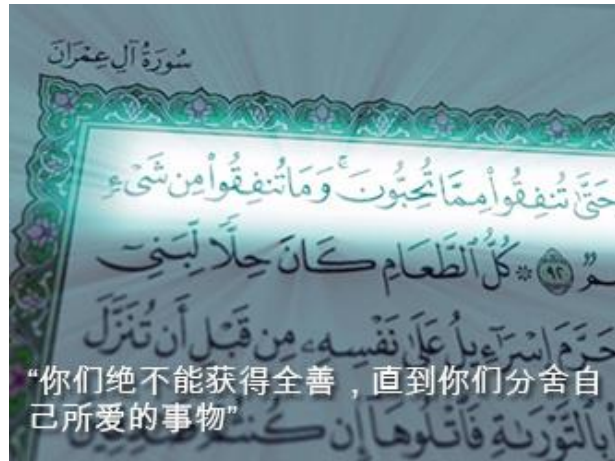 سُورَةُ آلِ عِمْرَانَ
حَتَّىٰ تُنفِقُوا۟ مِمَّا تُحِبُّونَ ۚ وَمَا تُنفِقُوا۟ مِن شَىْءٍ
۝٩٢ ۞ كُلُّ ٱلطَّعَامِ كَانَ حِلًّا لِّبَنِىٓ
حَرَّمَ إِسْرَٰٓءِيلُ عَلَىٰ نَفْسِهِۦ مِن قَبْلِ أَن تُنَزَّلَ
بِٱلتَّوْرَىٰةِ فَٱتْلُوهَآ إِن كُنتُمْ
“你们绝不能获得全善，直到你们分舍自
己所爱的事物”